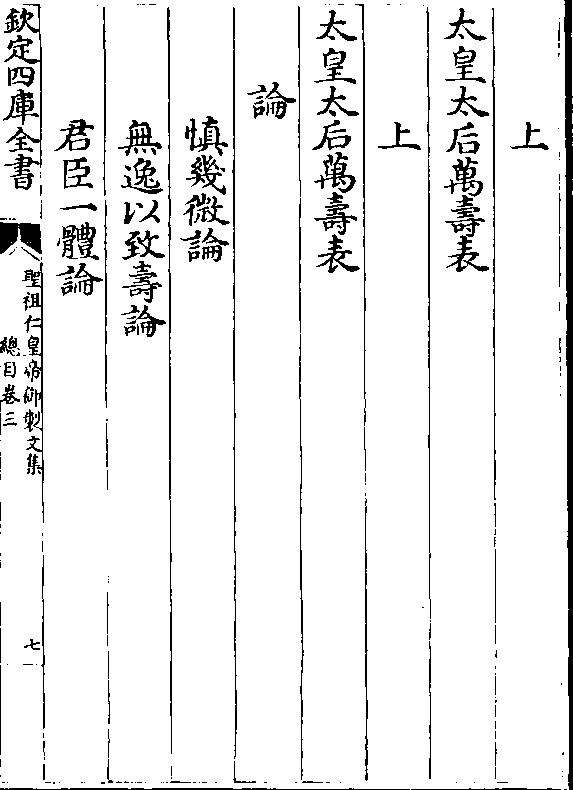 上
太皇太后萬壽表
上
太皇太后萬壽表
論
慎幾微論
無逸以致壽論
君臣一體論
欽定四庫全書
聖祖仁皇帝御製文集
總目卷三
七